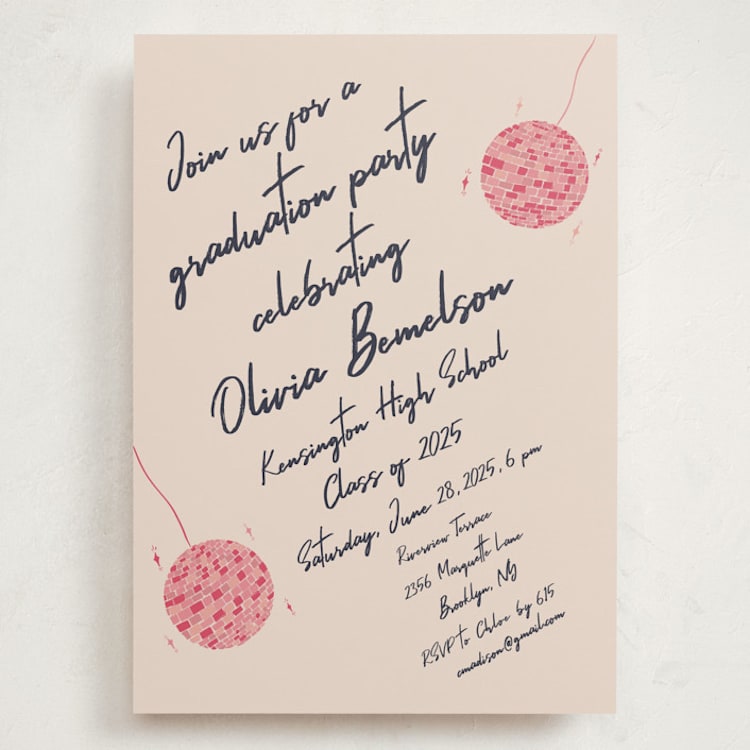 Join us for a
graduation party
celebrating
Olivia Bemelson
Kensington High School
Class of 2025
Saturday, June 28, 2025, 6 pm
Riverview Terrace
2356 Marquette Lane
Brooklyn, NY
RSVP to Chloe by 6/5
cmadison@gmail.com